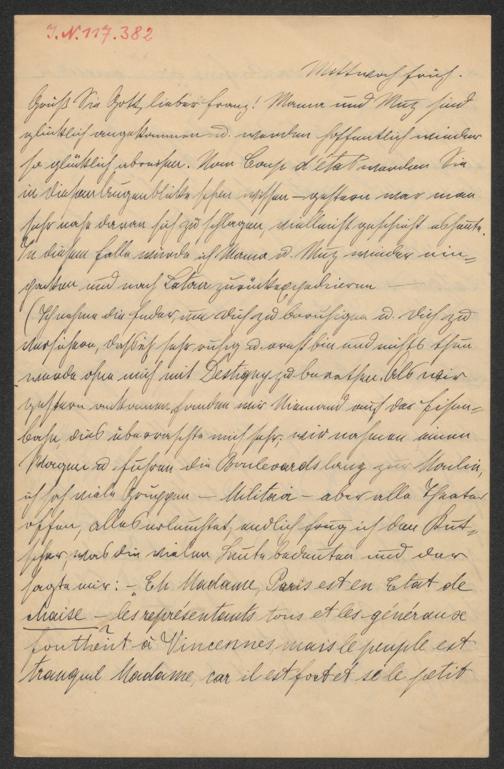 I.N. 117.382
Mittwoch früh.
Grüß Sie Gott, lieber Franz! Mama und Muz sind
glücklich angekommen u. werden hoffentlich wieder
so glücklich abreisen. Vom Coup d'état werden Sie
in diesem Augenblicke schon wissen – gestern war man
sehr nahe daran sich zu schlagen, vielleicht geschieht es heute.
In diesem Falle würde ich Mama u. Muz wieder ein=
packen und nach zurückexpedieren —
(Ich nehme die Feder um Dich zu beruhigen u. Dich zu
versichern, daß ich sehr ruhig u. ernst bin und nichts thun
werde ohne mich mit Destigny zu berathen. Als wir
gestern ankamen, fanden wir Niemand auf der Eisen=
bahn, dies überraschte mich sehr. wir nahmen einen
Wagen u. fuhren die Boulevards lang zur Moulin,
ich sah viele Gruppen – Militär – aber alle Theater
offen, alles erleuchtet, endlich frug ich den Kut=
scher, was die vielen Leute bedeuten und der
sagte mir: – "Eh Madame, Paris est en Etat de
chaise – les représentants tous et les généraux
sont à Vincennes mais le peuple est
tranquil Madame, car il est fort et si le petit